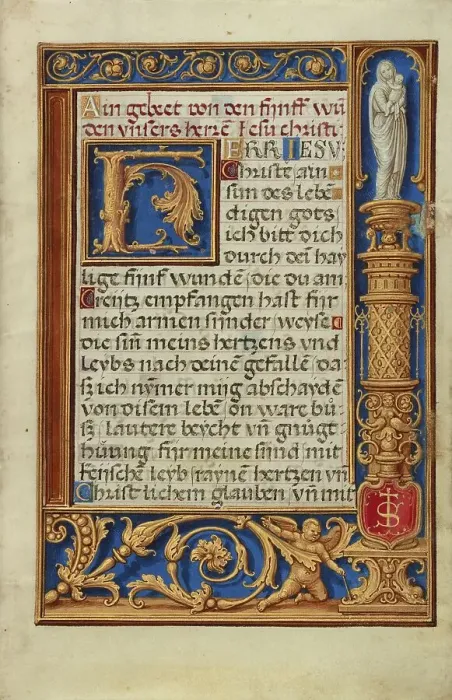 Ain gebeet von den fünff wū
den vnsers herrē Iesu christi
HERR IESV
Christe ain
sun des lebē
digen gots
ich bitt dich
durch dei hay
lige fünf wundē die du am
Creütz empfangen hast für
mich armen sünder weyse
die sin meins hertzens vnd
leybs nach deinē gefallē da
sz ich nÿmer müg abschaydē
von disem lebē on ware bů
sz lautere beycht vn̄ gnůgt
hüung für meine sünd mit
kewschē leyb raÿnē hertzen vn̄
Christlichem glauben vn̄ mit
IS